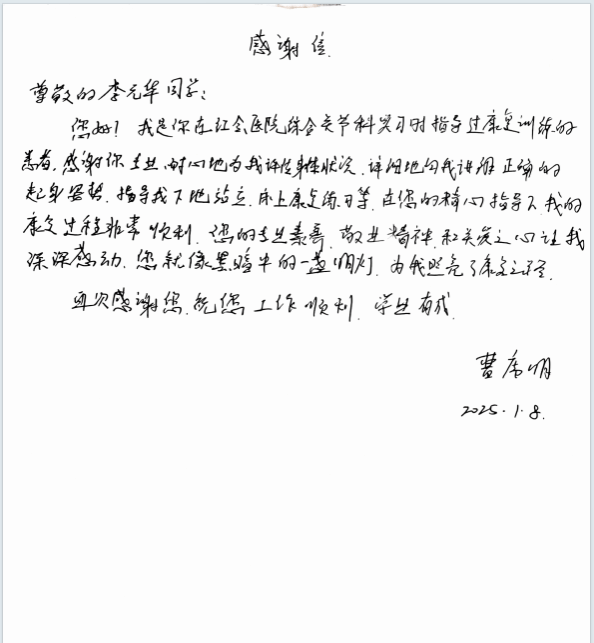 感谢信
尊敬的李元华同学：
您好！我是你在红会医院综合关节科实习时指导过康复训练的
患者。感谢你专业、耐心地为我评估身体状况，详细地向我讲解正确的
起身姿势，指导我下地站立、床上康复练习等，在您的精心指导下，我的
康复过程非常顺利。您的专业素养、敬业精神和关爱之心让我
深深感动，您就像黑暗中的一盏明灯，为我照亮了康复之路。
再次感谢您，祝您工作顺利，学业有成。
曹 明
2025.1.8.